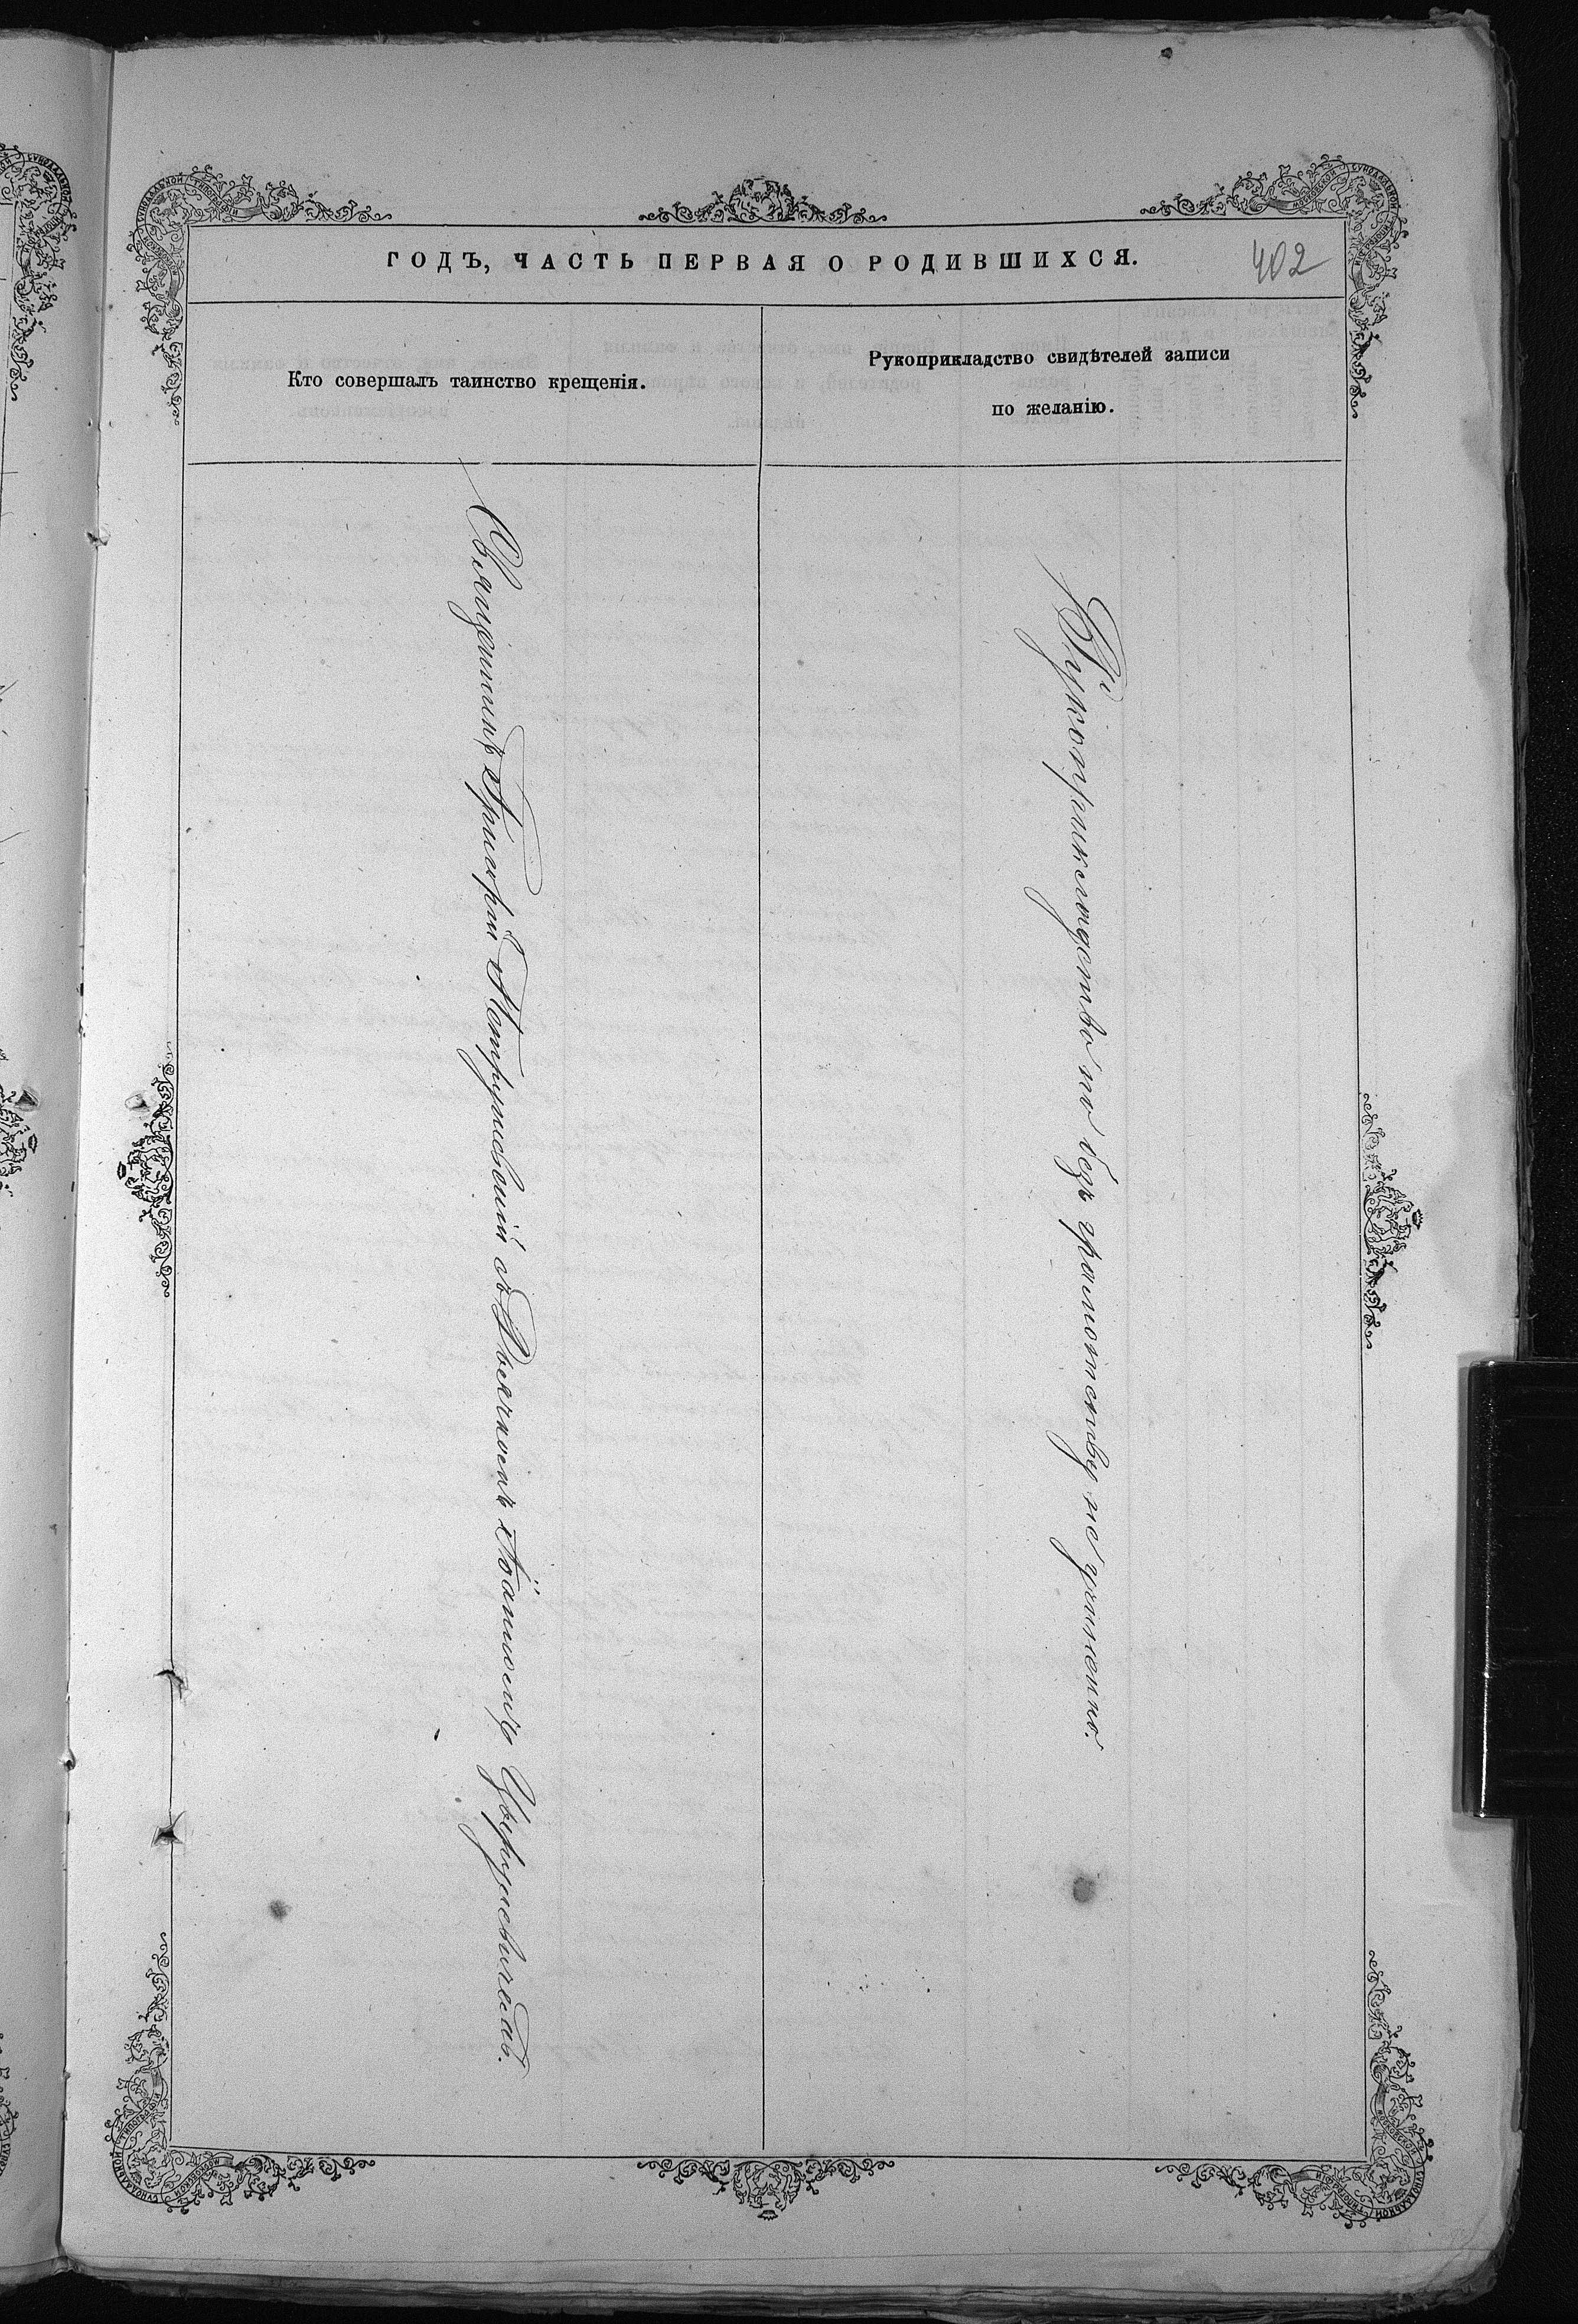 ГОДЪ, ЧАСТЬ ПЕРВАЯ О РОДИВШИХСЯ.
402
Кто совершалъ таинство крещенія.
Рукоприкладство свидѣтелей записи
по желанію.
Священникъ Григорій съ Іоанномъ
Рукоприкладство по безъ грамотству не учинено.